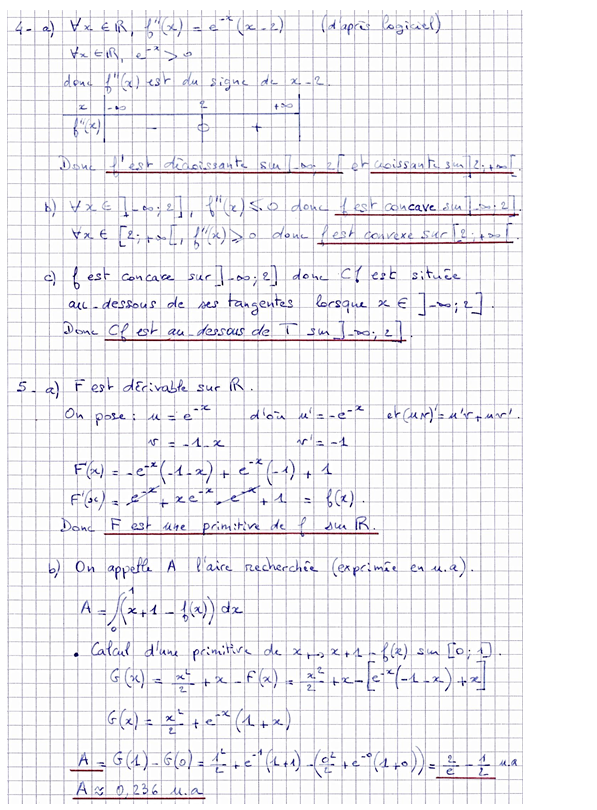 4- a) ∀x ∈ ℝ, f''(x) = e^{-x}(x-2) (d'après logiciel)
∀x ∈ ℝ, e^{-x} > 0
donc f''(x) est du signe de x-2.
x | -∞ 2 +∞
f''(x) | - 0 +
Donc f' est décroissante sur ]-∞; 2[ et croissante sur ]2; +∞[.
b) ∀x ∈ ]-∞; 2], f''(x) ⩽ 0 donc f est concave sur ]-∞; 2].
∀x ∈ [2; +∞[, f''(x) ⩾ 0 donc f est convexe sur [2; +∞[.
c) f est concave sur ]-∞; 2] donc Cf est située
au-dessous de ses tangentes lorsque x ∈ ]-∞; 2].
Donc Cf est au-dessous de T sur ]-∞; 2].
5- a) F est dérivable sur ℝ.
On pose : u = e^{-x} d'où u' = -e^{-x} et (uv)' = u'v + uv'.
v = -1-x v' = -1
F'(x) = -e^{-x}(-1-x) + e^{-x}(-1) + 1
F'(x) = e^{-x} + xe^{-x} - e^{-x} + 1 = f(x).
Donc F est une primitive de f sur ℝ.
b) On appelle A l'aire recherchée (exprimée en u.a).
A = ∫_0^1 (x+1 - f(x)) dx
• Calcul d'une primitive de x ↦ x+1 - f(x) sur [0; 1].
G(x) = x²/2 + x - F(x) = x²/2 + x - [e^{-x}(-1-x) + x]
G(x) = x²/2 + e^{-x}(1+x)
A = G(1) - G(0) = 1²/2 + e^{-1}(1+1) - (0²/2 + e^{-0}(1+0)) = 2/e - 1/2 u.a
A ≈ 0,236 u.a